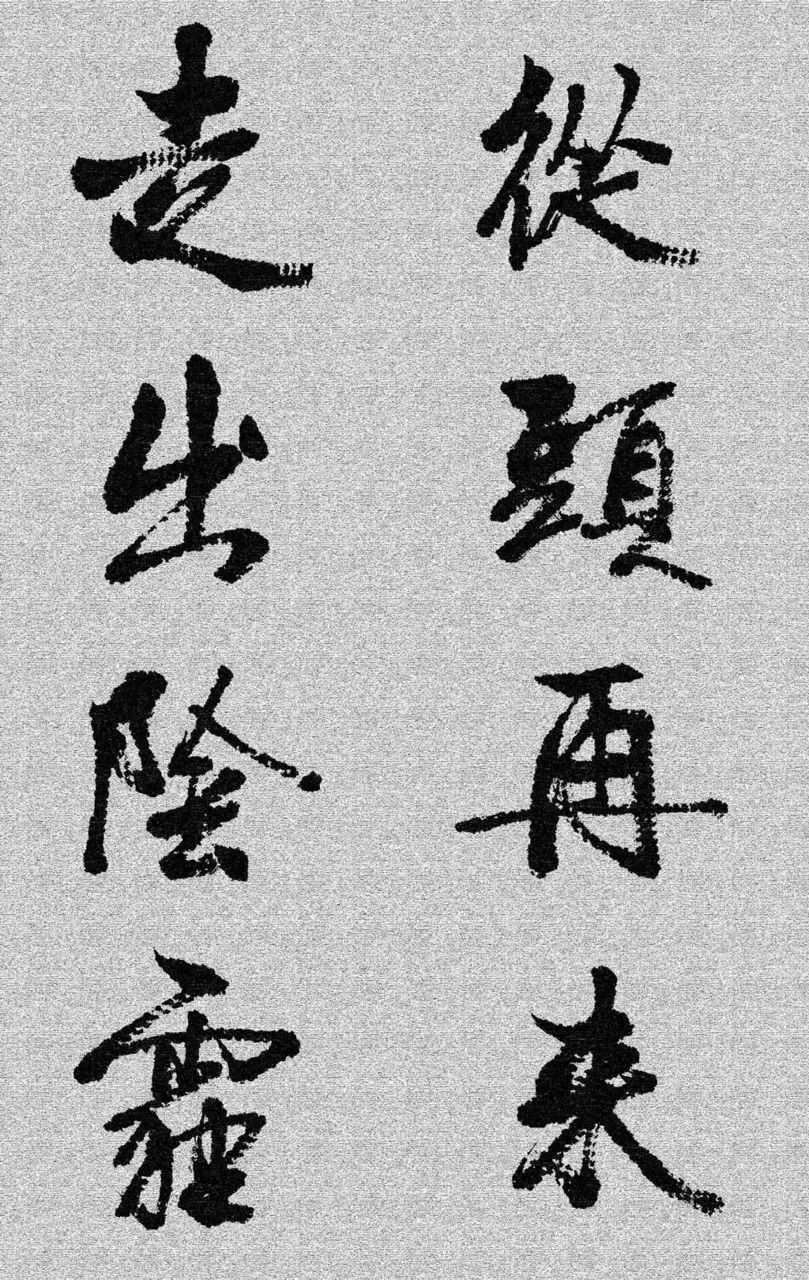 從頭再来
走出陰霾